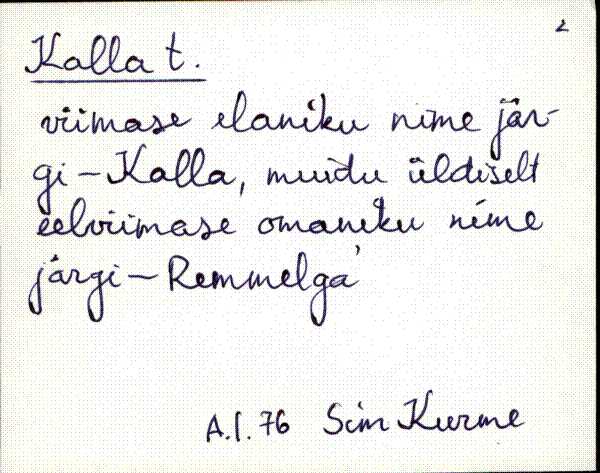 2
Kalla t.
viimase elaniku nime jär-
gi – Kalla, muidu üldiselt
eelviimase omaniku nime
järgi – Remmelga'
A.I. 76 Siim Kurme